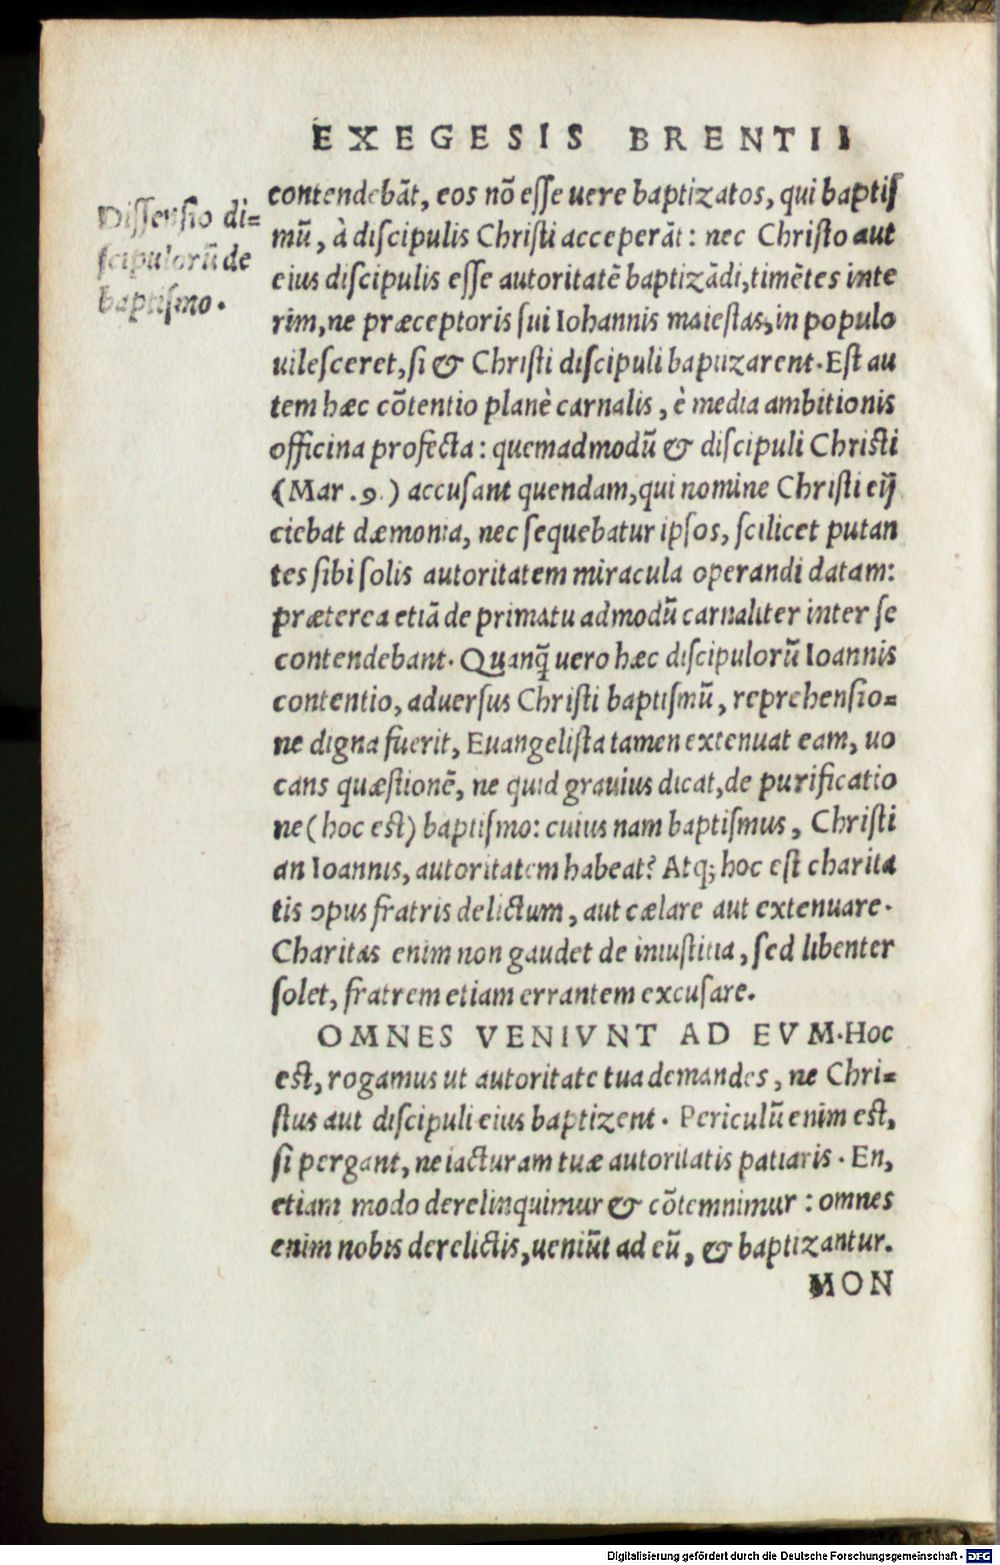 EXEGESIS BRENTII
Dissensio di=
scipulorū de
baptismo.
contendebāt, eos nō esse uere baptizatos, qui baptis
mū, à discipulis Christi acceperāt: nec Christo aut
eius discipulis esse autoritatē baptizādi, timētes inte
rim, ne præceptoris sui Iohannis maiestas, in populo
uilesceret, si & Christi discipuli baptizarent. Est au
tem hæc cōtentio planè carnalis, è media ambitionis
officina profecta: quemadmodū & discipuli Christi
(Mar. 9.) accusant quendam, qui nomine Christi eij
ciebat dæmonia, nec sequebatur ipsos, scilicet putan
tes sibi solis autoritatem miracula operandi datam:
præterea etiā de primatu admodū carnaliter inter se
contendebant. Quanq̄ uero hæc discipulorū Ioannis
contentio, aduersus Christi baptismū, reprehensio=
ne digna fuerit, Euangelista tamen extenuat eam, uo
cans quæstionē, ne quid grauius dicat, de purificatio
ne (hoc est) baptismo: cuius nam baptismus, Christi
an Ioannis, autoritatem habeat? Atq; hoc est charita
tis opus fratris delictum, aut cælare aut extenuare.
Charitas enim non gaudet de iniustitia, sed libenter
solet, fratrem etiam errantem excusare.
OMNES VENIVNT AD EVM. Hoc
est, rogamus ut autoritate tua demandes, ne Chri=
stus aut discipuli eius baptizent. Periculū enim est,
si pergant, ne iacturam tuæ autoritatis patiaris. En,
etiam modo derelinquimur & cōtemnimur: omnes
enim nobis derelictis, ueniūt ad eū, & baptizantur.
MON
Digitalisierung gefördert durch die Deutsche Forschungsgemeinschaft - DFG